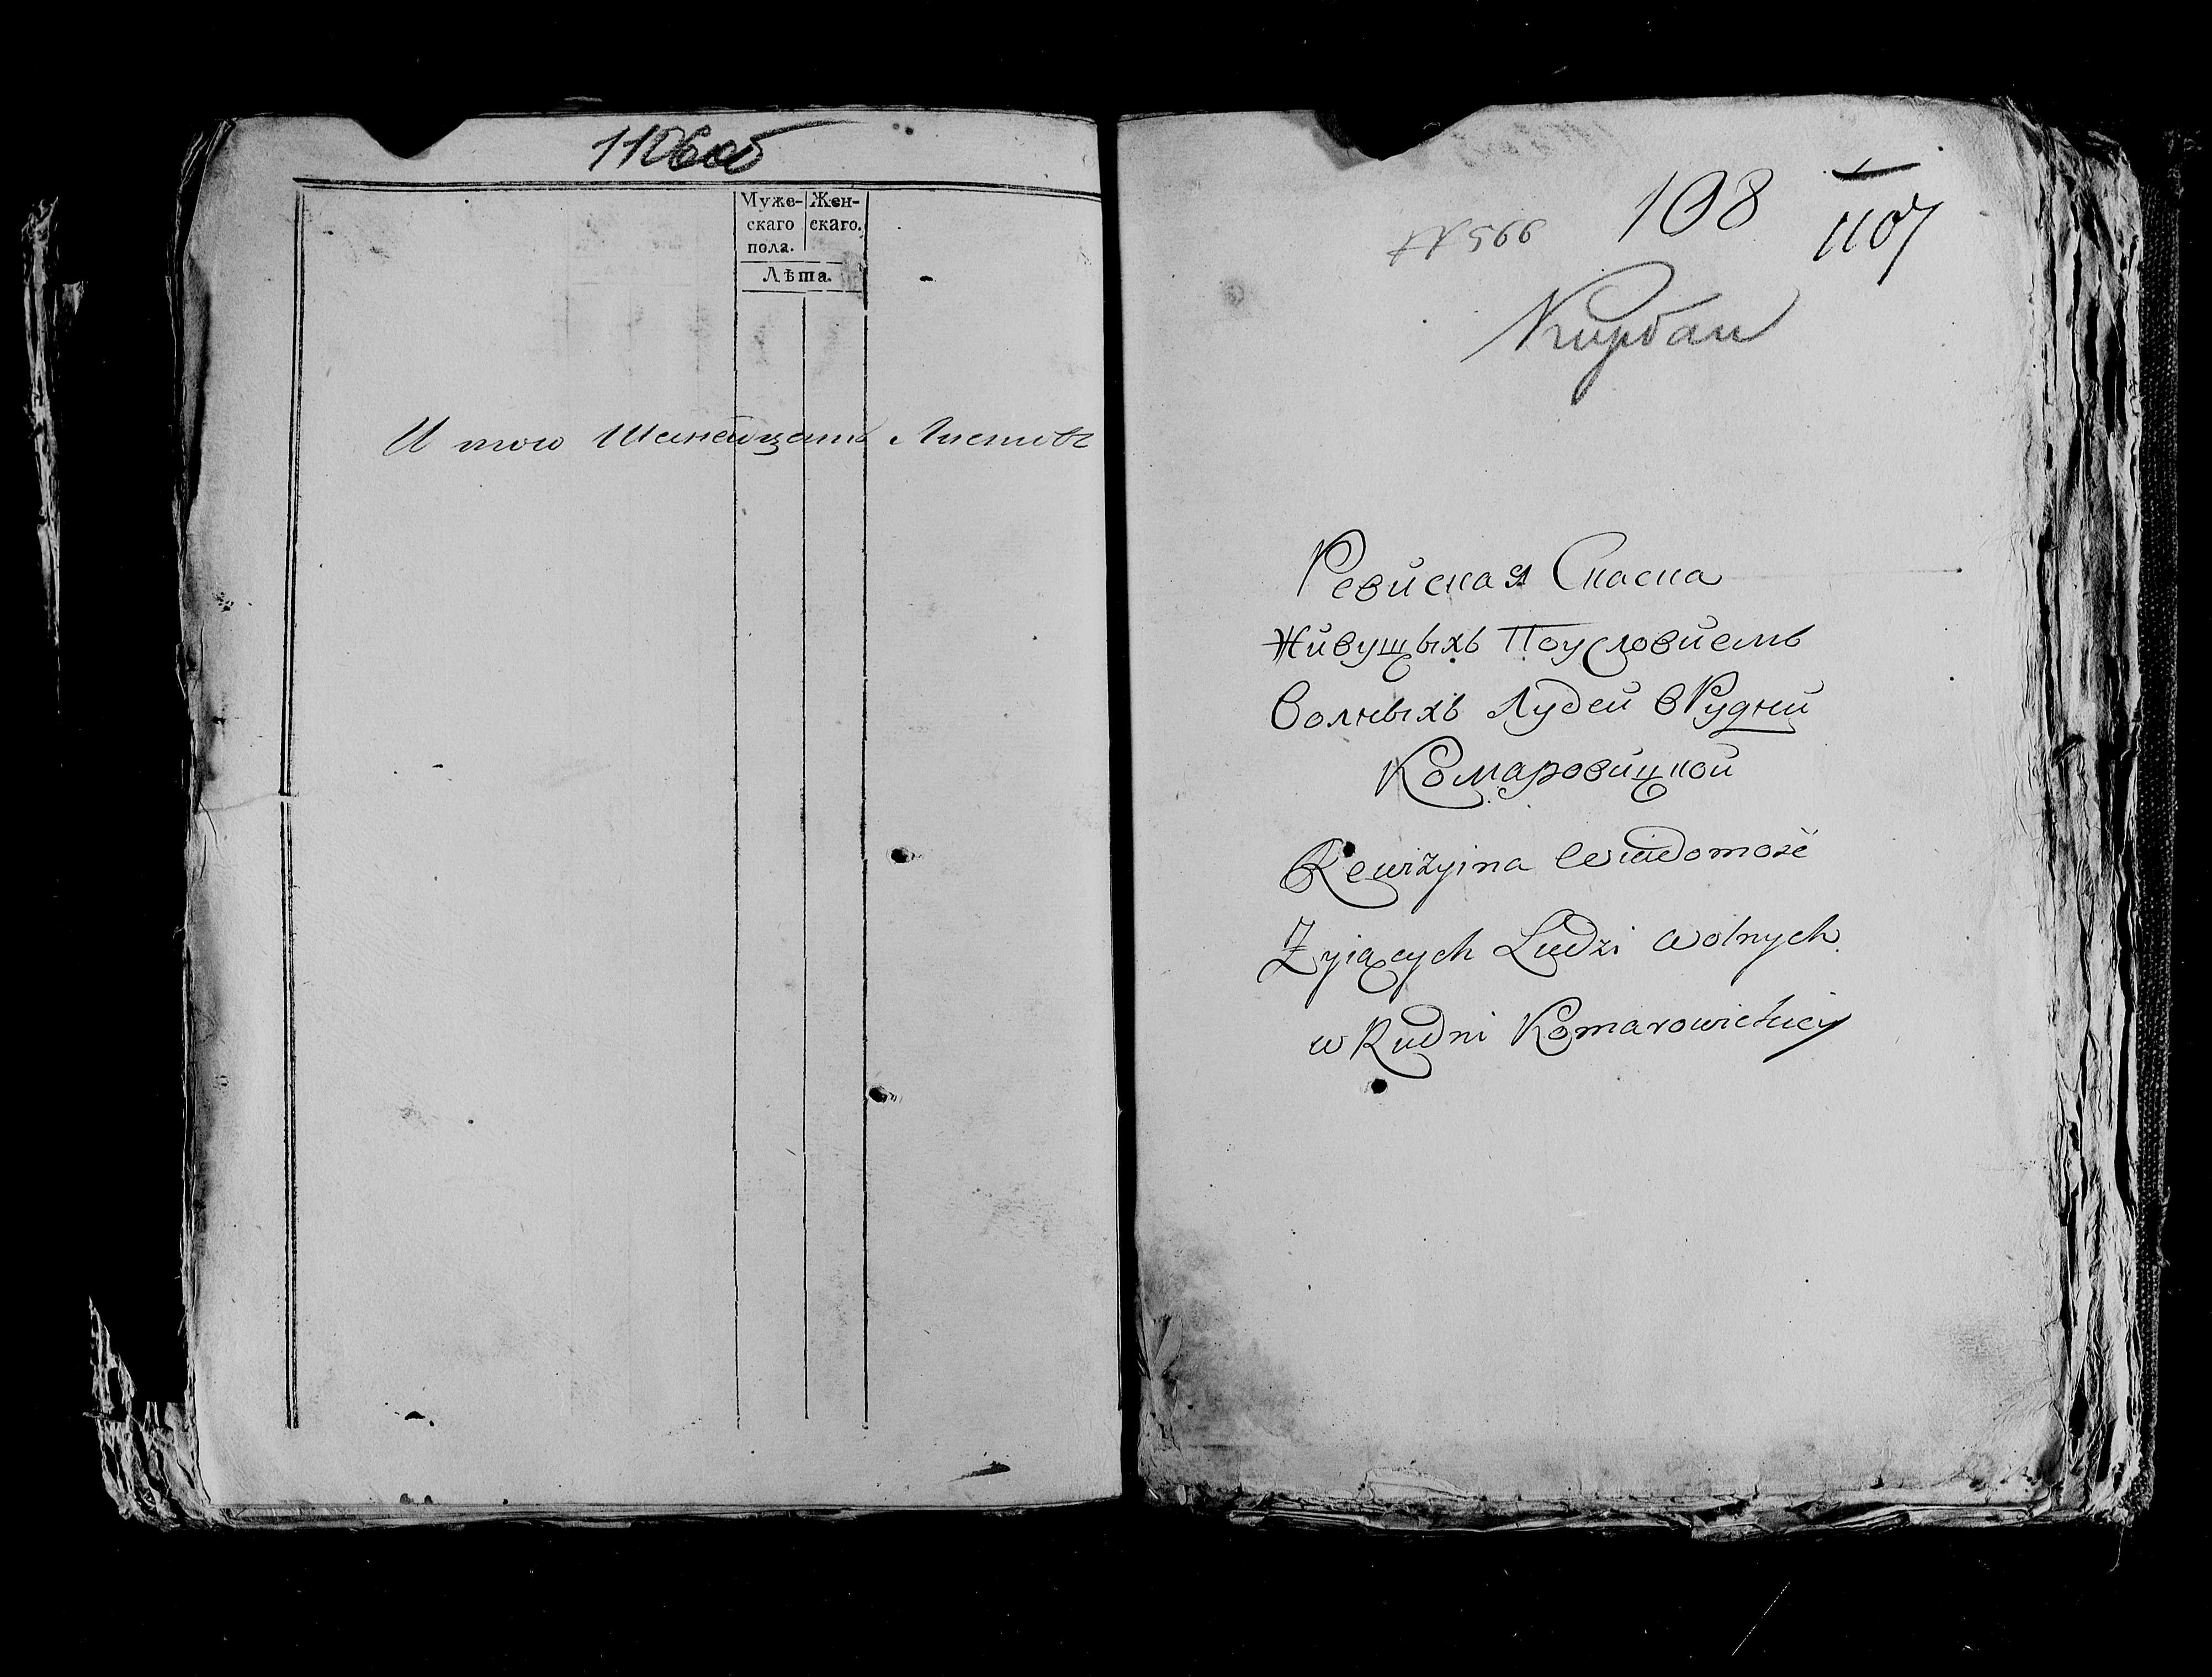 1106об
Муже-
скаго
пола.
Жен-
скаго.
Лѣта.
И того Шеснайцать Листовъ
№ 566
108
1107
Курбан
Ревиская Скаска
Живущыхъ Поусловиемъ
Волныхъ Лудей вРудни
Комаровицкой
Rewizyina Wiadomość
Żyiących Ludzi Wolnych
w Rudni Komarowickiey